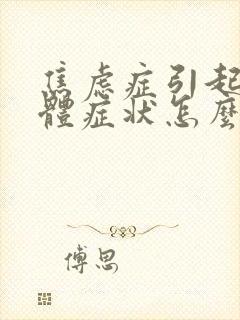 焦虑症引起
體症状怎麼
傅思